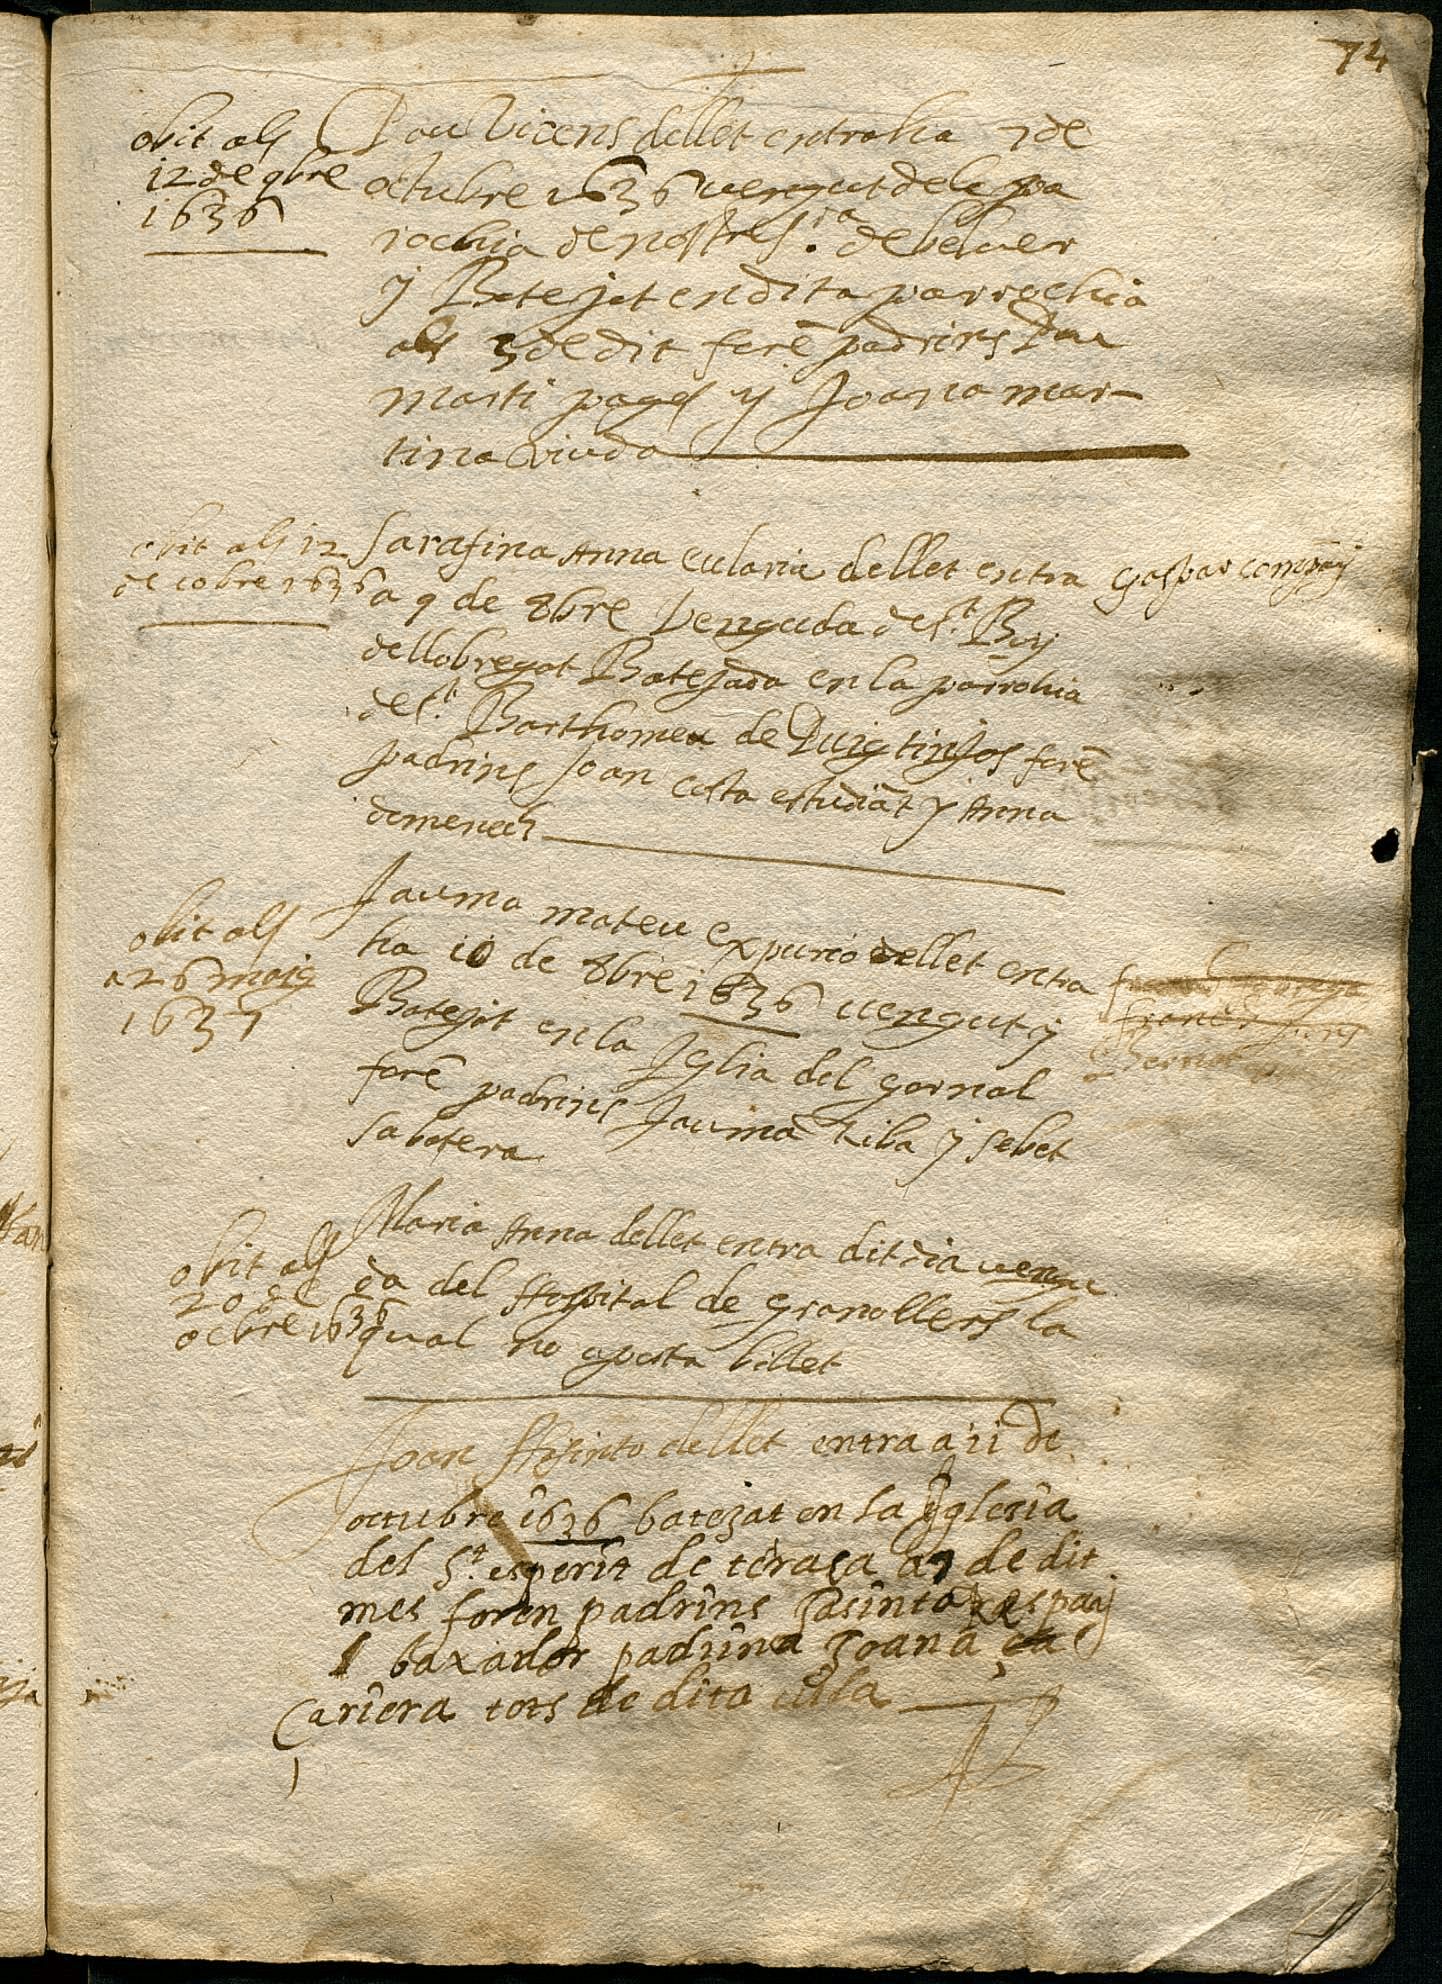 74
obit als
12 de 9bre
1636
Pau Vicens dellet entra ha 7 de
octubre 1636 uengut de la pa
rochia de nostre S.ra de beluer
y Batejat en dita parrochia
als 3 de dit forẽ padrins Pau
marti pages y Joana mar-
tina viuda
obit als 12
de 10bre 1636
Sarafina Anna eularia dellet entra
a 9 de 8bre Venguda de S.t Boy
dellobregat Batejada en la parrohia
de S.t Barthomeu de Puig tinyos forẽ
padrins Joan costa estudiãt y Anna
domenech
gaspar company
obit als
a 26 maig
1637
Jauma mateu expurio dellet entra
ha 10 de 8bre 1636 uengut y
Batejat en la Iglia del gornal
forẽ padrins Jauma Riba y sebet
sabatera
obit als
20 de
octbre 1636
Maria Anna dellet entra dit dia uengu
da del Hospital de granollers la
qual no aporta billet
Joan Hisinto dellet entra a 11 de
octubre 1636 batezat en la Iglesia
del S.t esperit de terasa a 7 de dit
mes foren padrins Jasinto
baxador padrina Joana
Cariera tots de dita uila